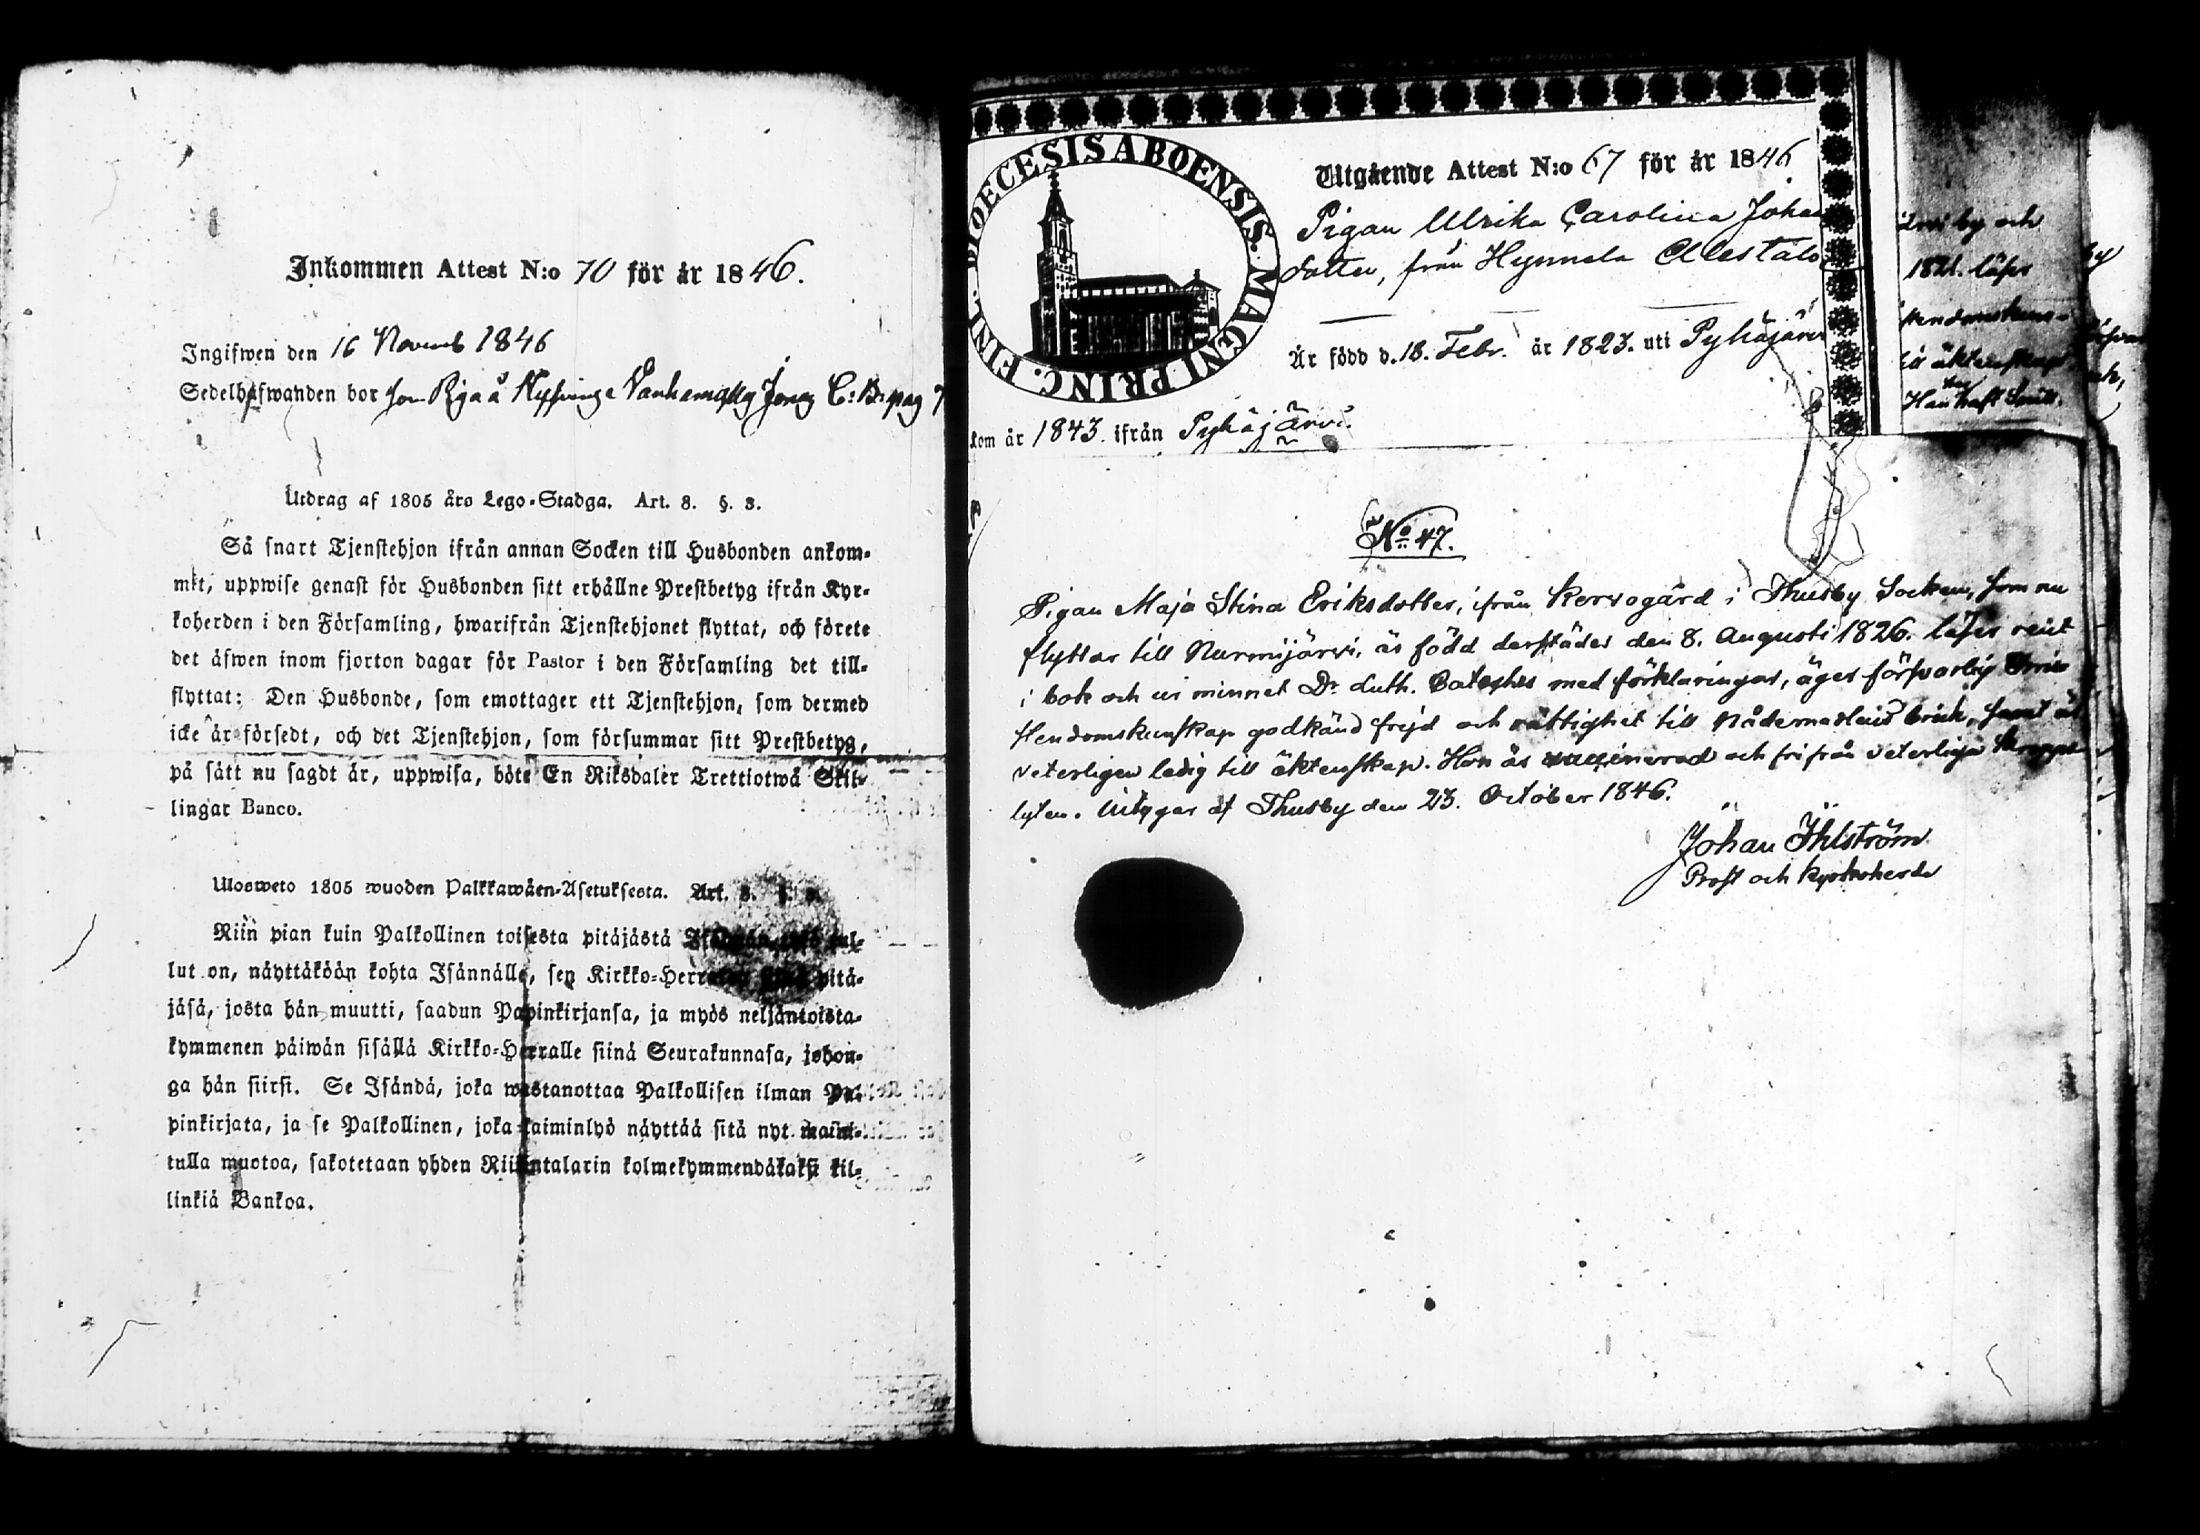 Inkommen Attest N:o 70 för år 1846.
Ingifwen den 16 Novemb 1846
Sedelhafwanden bor som Piga å C: B: pag 7
Utdrag af 1805 års Lego-Stadga. Art. 8. §. 3.
Så snart Tjenstehjon ifrån annan Socken till Husbonden ankom-
mit, uppwise genast för Husbonden sitt erhållne Prestbetyg ifrån Kyr-
koherden i den Församling, hwarifrån Tjenstehjonet flyttat, och förete
det äfwen inom fjorton dagar för Pastor i den Församling det till-
flyttat: Den Husbonde, som emottager ett Tjenstehjon, som dermed
icke är försedt, och det Tjenstehjon, som försummar sitt Prestbetyg,
på sätt nu sagdt är, uppwisa, böte En Riksdaler Trettiotwå Skil-
lingar Banco.
Ulosweto 1805 wuoden Palkkawäen-Asetuksesta. Art. 8. §.
Niin pian kuin Palkollinen toisesta pitäjästä tul-
lut on, näyttäköön kohta Isännälle, sen Kirkko-Herralta pitä-
jäsä, josta hän muutti, saadun Papinkirjansa, ja myös neljäntoista-
kymmenen päiwän sisällä Kirkko-Herralle siinä Seurakunnasa, johon-
ga hän siirsi. Se Isändä, joka wastanottaa Palkollisen ilman Pa-
pinkirjata, ja se Palkollinen, joka laiminlyö näyttää sitä nyt maini-
tulla muotoa, sakotetaan yhden Riikintalarin kolmekymmendäkaksi kil-
linkiä Bankoa.
DIOECESIS ABOENSIS. MAGNI PRINC. FINL.
Utgående Attest N:o 67 för år 1846
Pigan Ulrika Carolina Johan
dotter, från Hynnela Alestalo
Är född d. 18. Febr. år 1823. uti Pyhäjärvi
kom år 1843. ifrån Pyhäjärvi.
by och
1821. läser
äktenskap
No 47.
Pigan Maja Stina Eriksdotter, ifrån Kervogård i Thusby Socken, som nu
flyttar till Nurmijärvi, är född derstädes den 8. Augusti 1826. läser rent
i bok och ur minnet Dr Luth. Cateches med förklaringar, äger försvarlig Chris
tendomskunskap godkänd frejd och rättighet till Nådemedlens bruk, samt är
veterligen ledig till äktenskap. Hon är vaccinerad och fri från veterliga kropps
lyten. Intygar af Thusby den 23. October 1846.
Johan Ihlström
Prost och Kyrkoherde